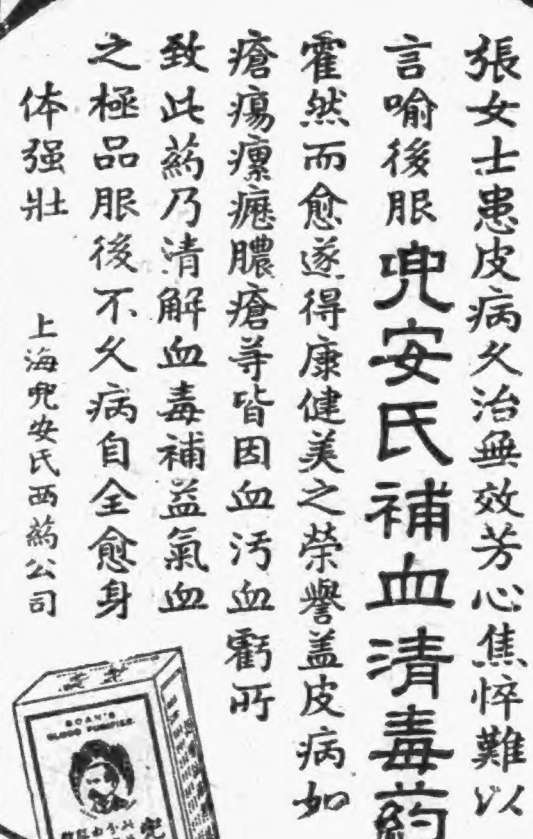 張女士患皮病久治無效芳心焦悴難以
言喻後服兜安氏補血清毒葯
霍然而愈遂得康健美之荣譽盖皮病如
瘡瘍瘰癧膿瘡等皆因血污血虧所
致此葯乃清解血毒補益氣血
之極品服後不久病自全愈身
体强壯
上海兜安氏西葯公司
DOAN'S
BLOOD PURIFIER